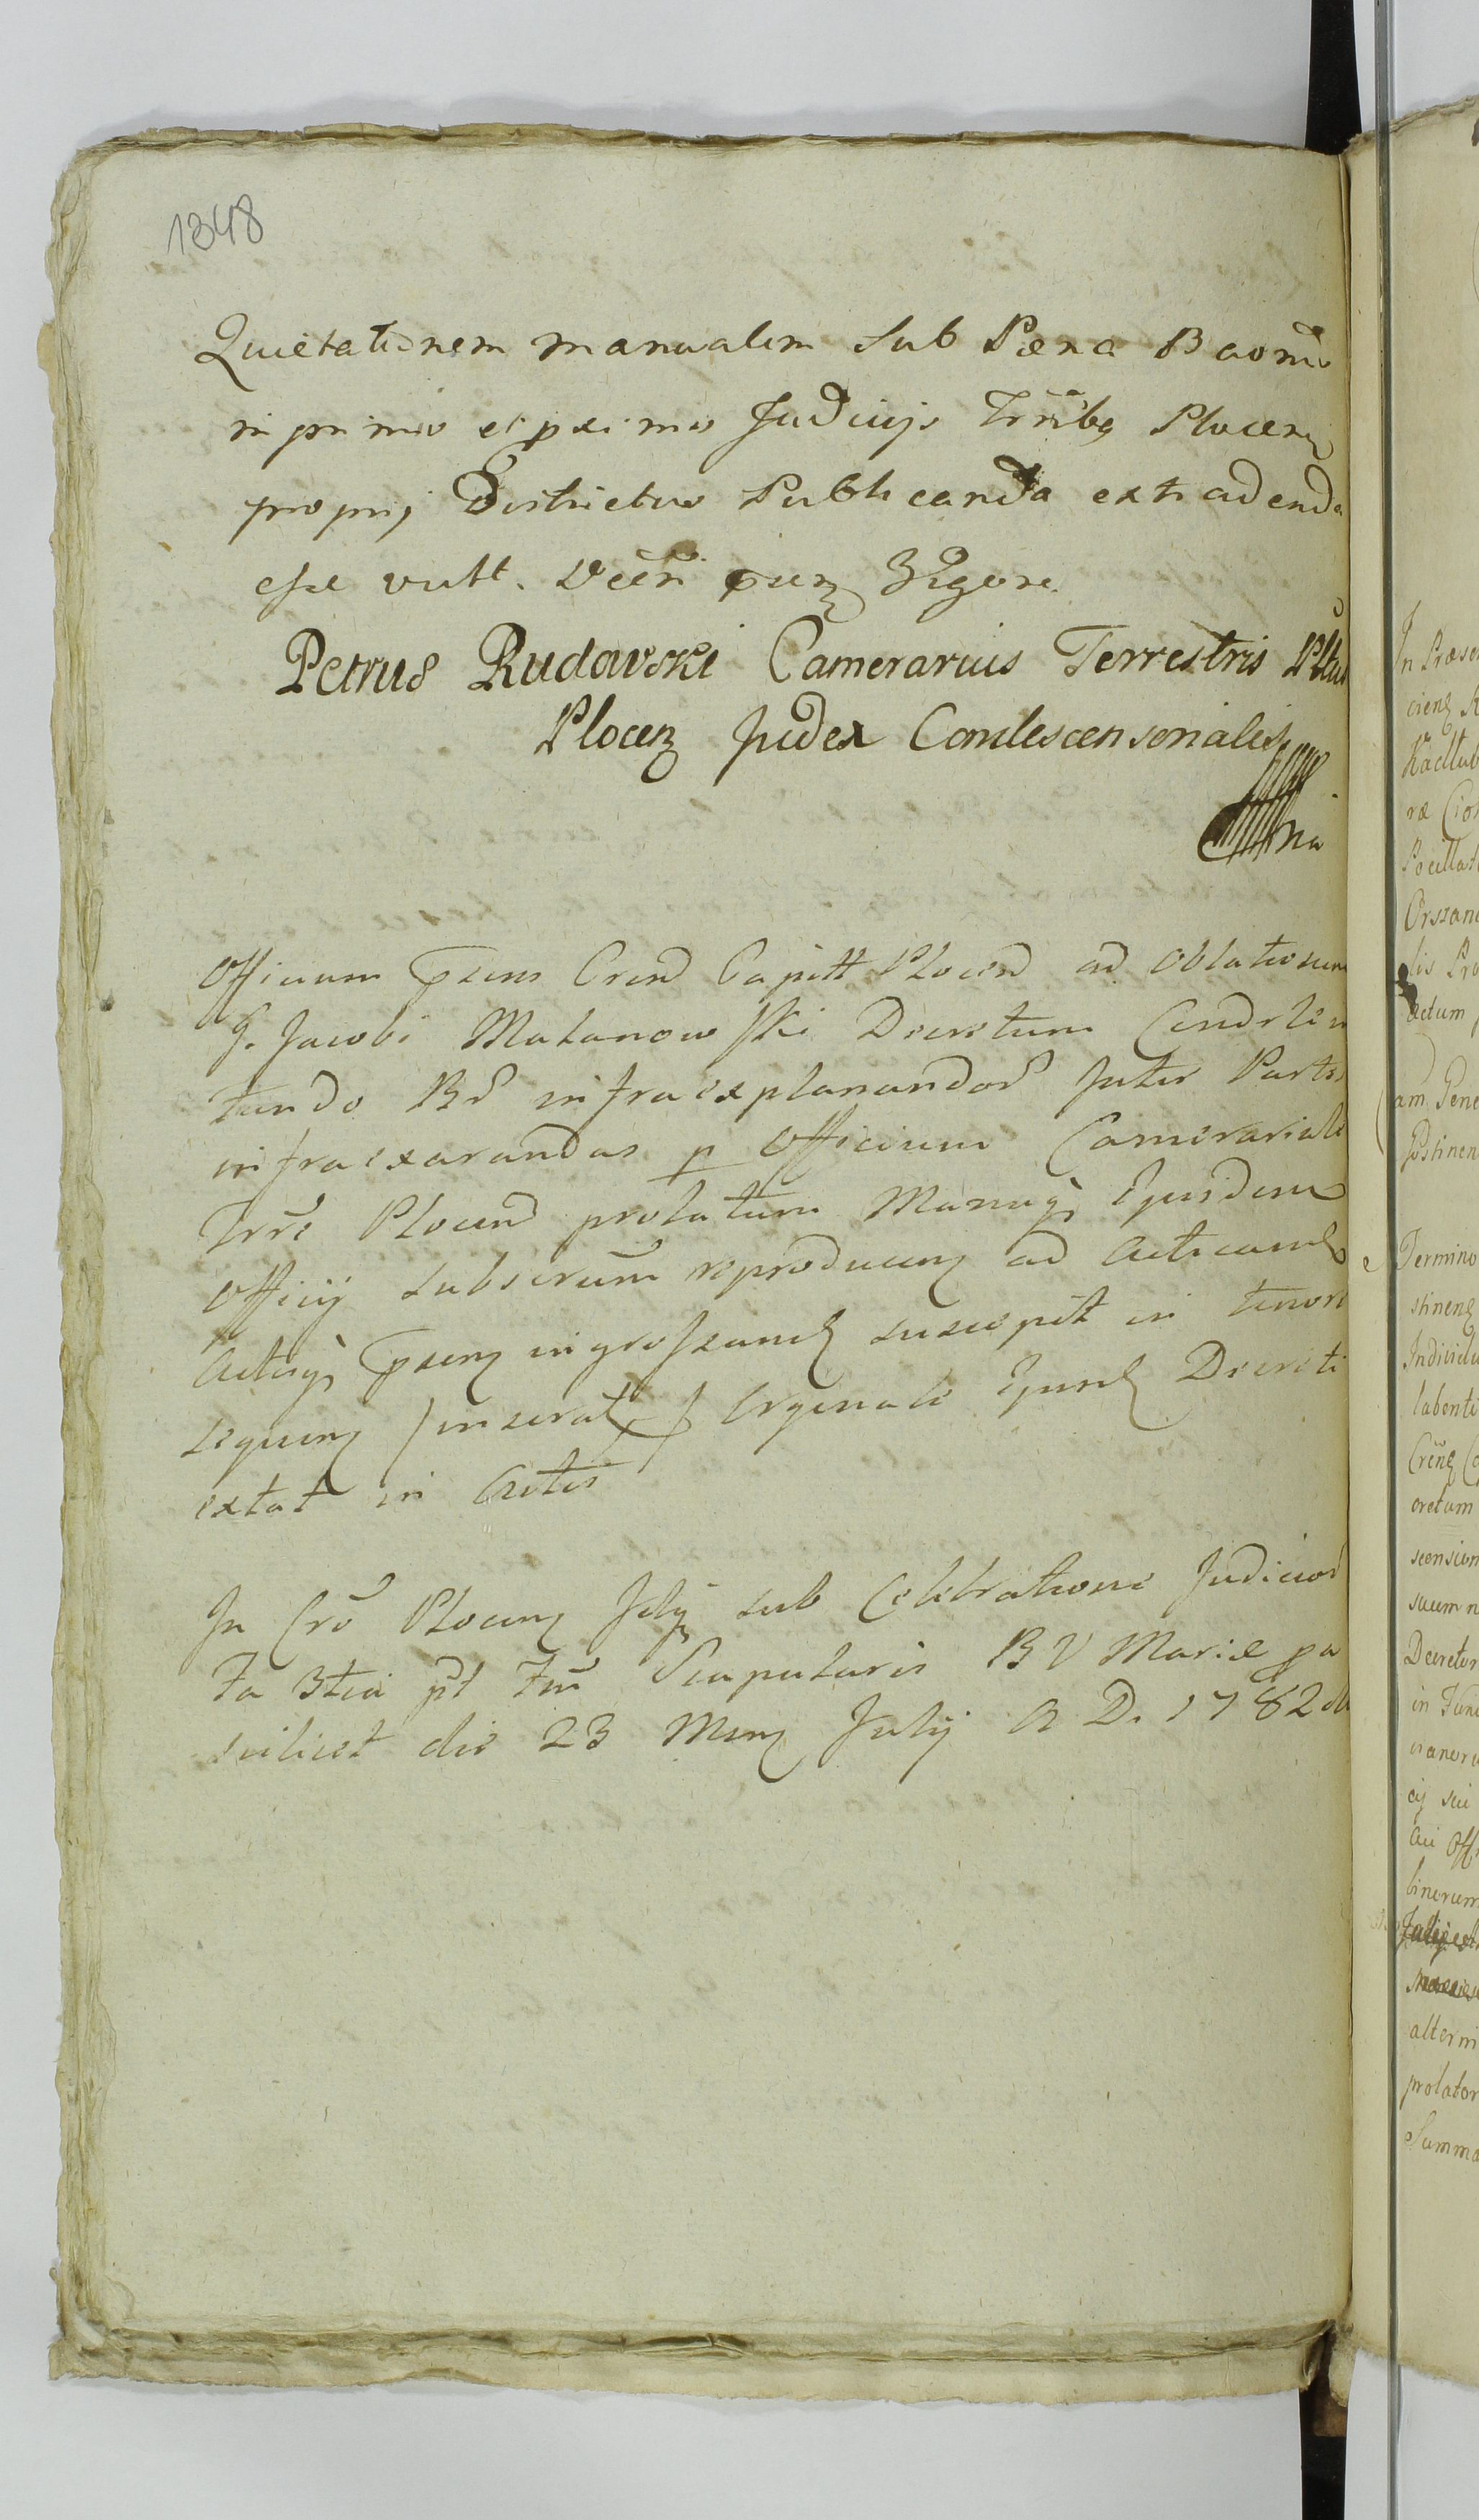 1348
Quietationem manualem Sub Pæna Baoms
in primis et pximis Judicijs Trribq Plocenz
proprij Districtus Publicanda extradenda
esse vult. Decrti psenz Vigore
Petrus Rudavski Camerarius Terrestris Pltus
Plocenz Judex Condescensorialis
mp
Officium psens Crend Capitt Plocend ad Oblationem
G. Jacobi Matanowski Decretum Condelen
tundo Br infraexplanandor Inter Partes
infraexarandas p Officium Camerariale
Trre Plocend prolatum Manuq Ejusdem
Officij subscrum reproducenz ad Acticand
Actisq psenz ingrossand suscepit in tenore
sequenz inserat Orgenale Ejusd Decreti
extat in Actis
In Cro Plocenz feliq sub Celebratione Judicior
fa 3tia pt Fm Scapularis BV Mariæ pa
scilicet die 23 Menz Julij A D. 1782do
In Præse
cienz K
Kadlub
ræ Cio
Pocillat
Orszan
lis Pr
actum
am Gene
Gostinen
Termino
stinenz
Individu
labenti
Crenz Ca
oretum
scension
suum n
Decretor
in Fun
vanoru
cij sui
aii Off
binorum
altern
prolator
Summa